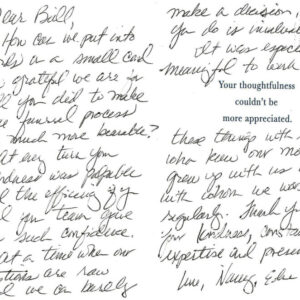 Dear Bill,
How can we put into
on a small card
grateful we are in
you did to make
funeral process
much more bearable?
At every turn your
kindness was palpable
the efficiency
team gave
such confidence.
at a time when our
are raw
we can barely
make a decision,
you do is invaluable
It was especially
meaningful to work
Your thoughtfulness
couldn't be
more appreciated.
these things with
who knew our mo
grew up with us
with whom we
regularly. Thank you
your kindness,
expertise and
Love, Nancy,